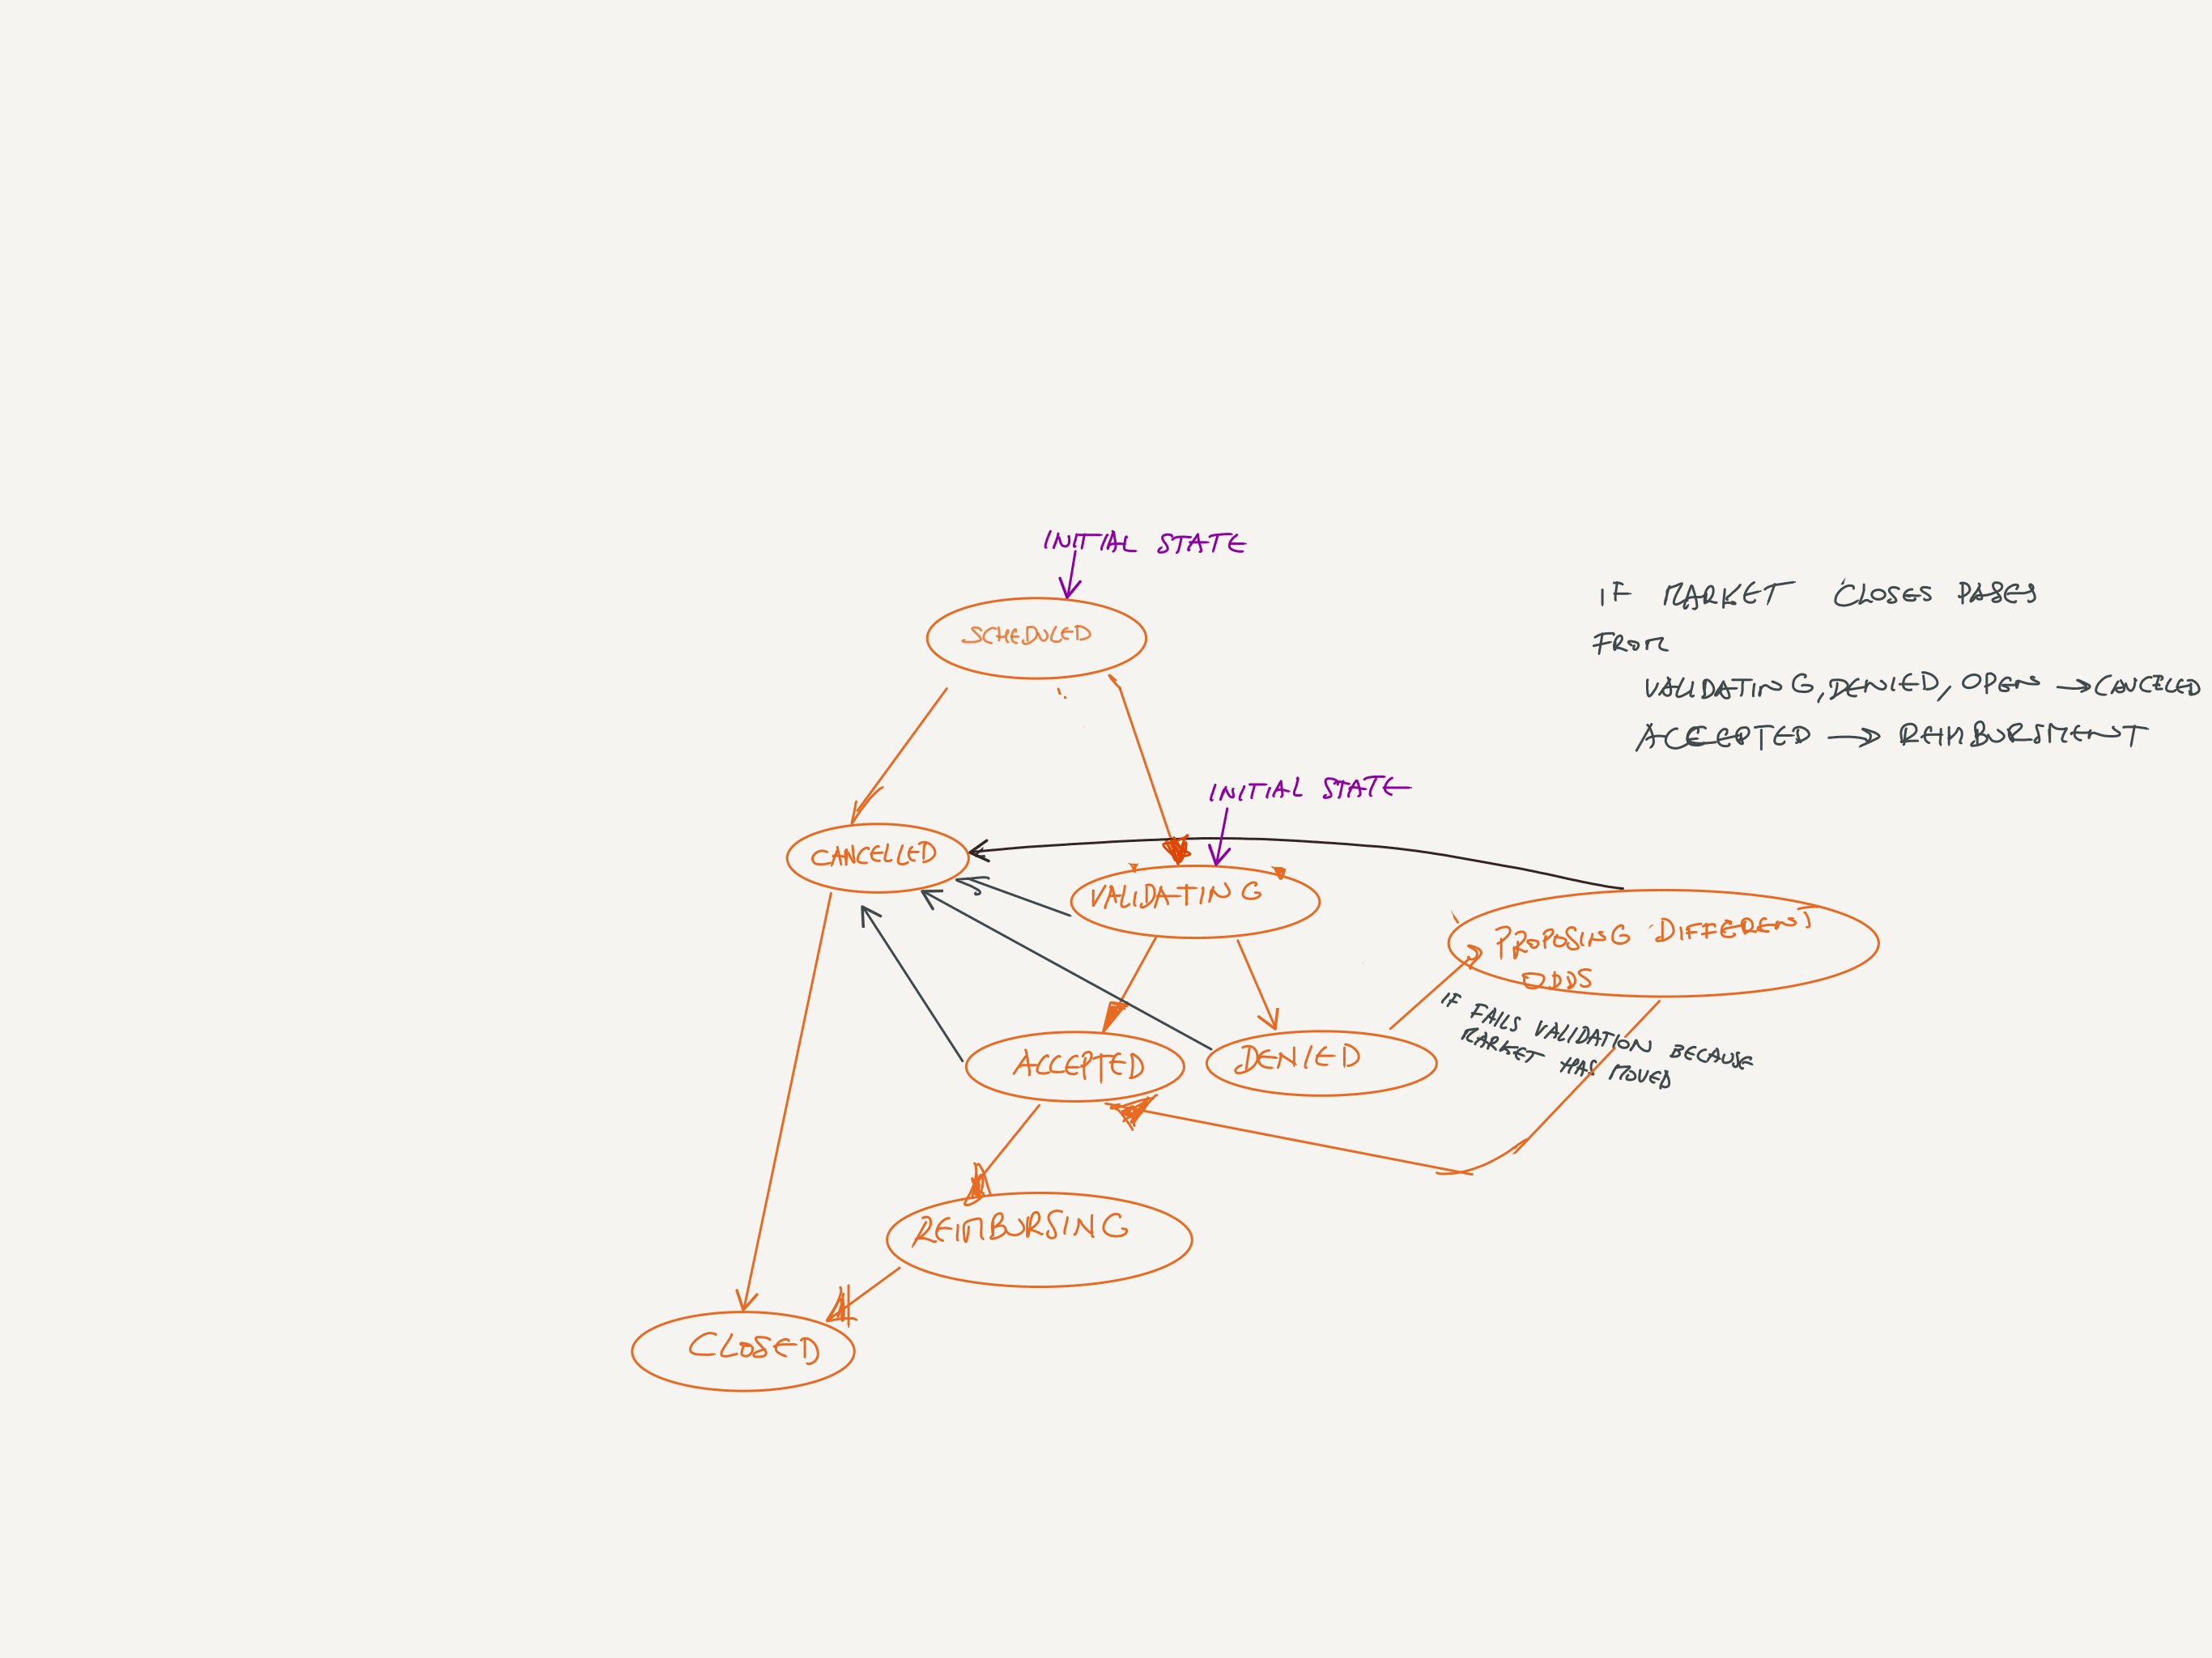 INITIAL STATE
SCHEDULED
IF MARKET CLOSES PASES
FROM
VALIDATING, DENIED, OPEN → CANCELED
ACCEPTED → REIMBURSMENT
INITIAL STATE
CANCELLED
VALIDATING
PROPOSING DIFFERENT
ODDS
IF FAILS VALIDATION BECAUSE
MARKET HAS MOVED
ACCEPTED
DENIED
REIMBURSING
CLOSED